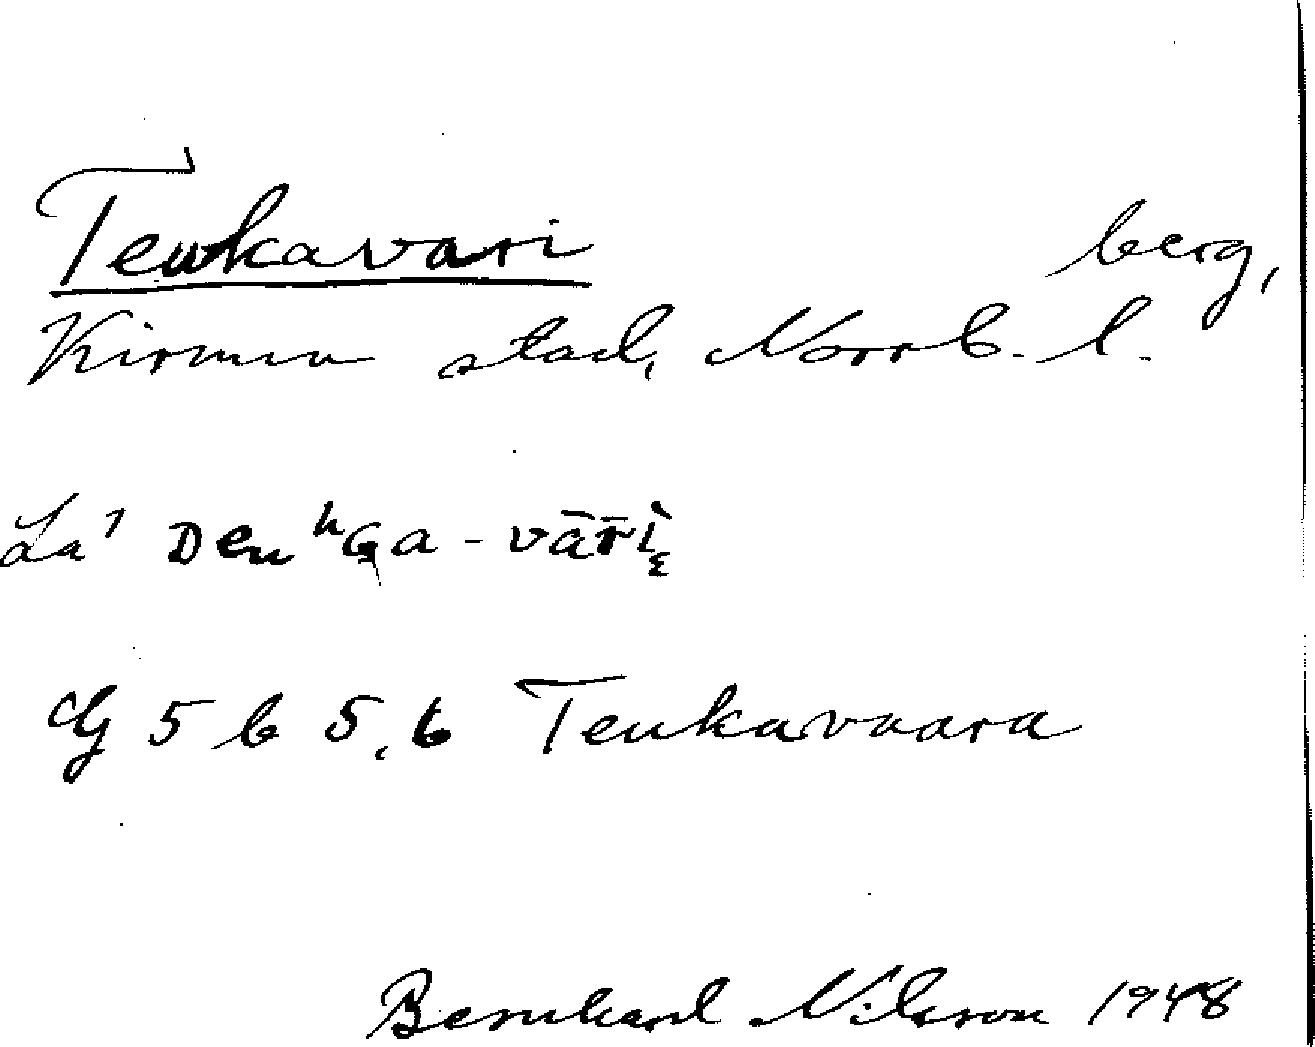 Teukavari berg,
Kiruna stad, Norrb. l.
La' Deu ʰGa - vāri
G 5 b 5, 6 Teukavaara
Bernhard Nilsson 1948